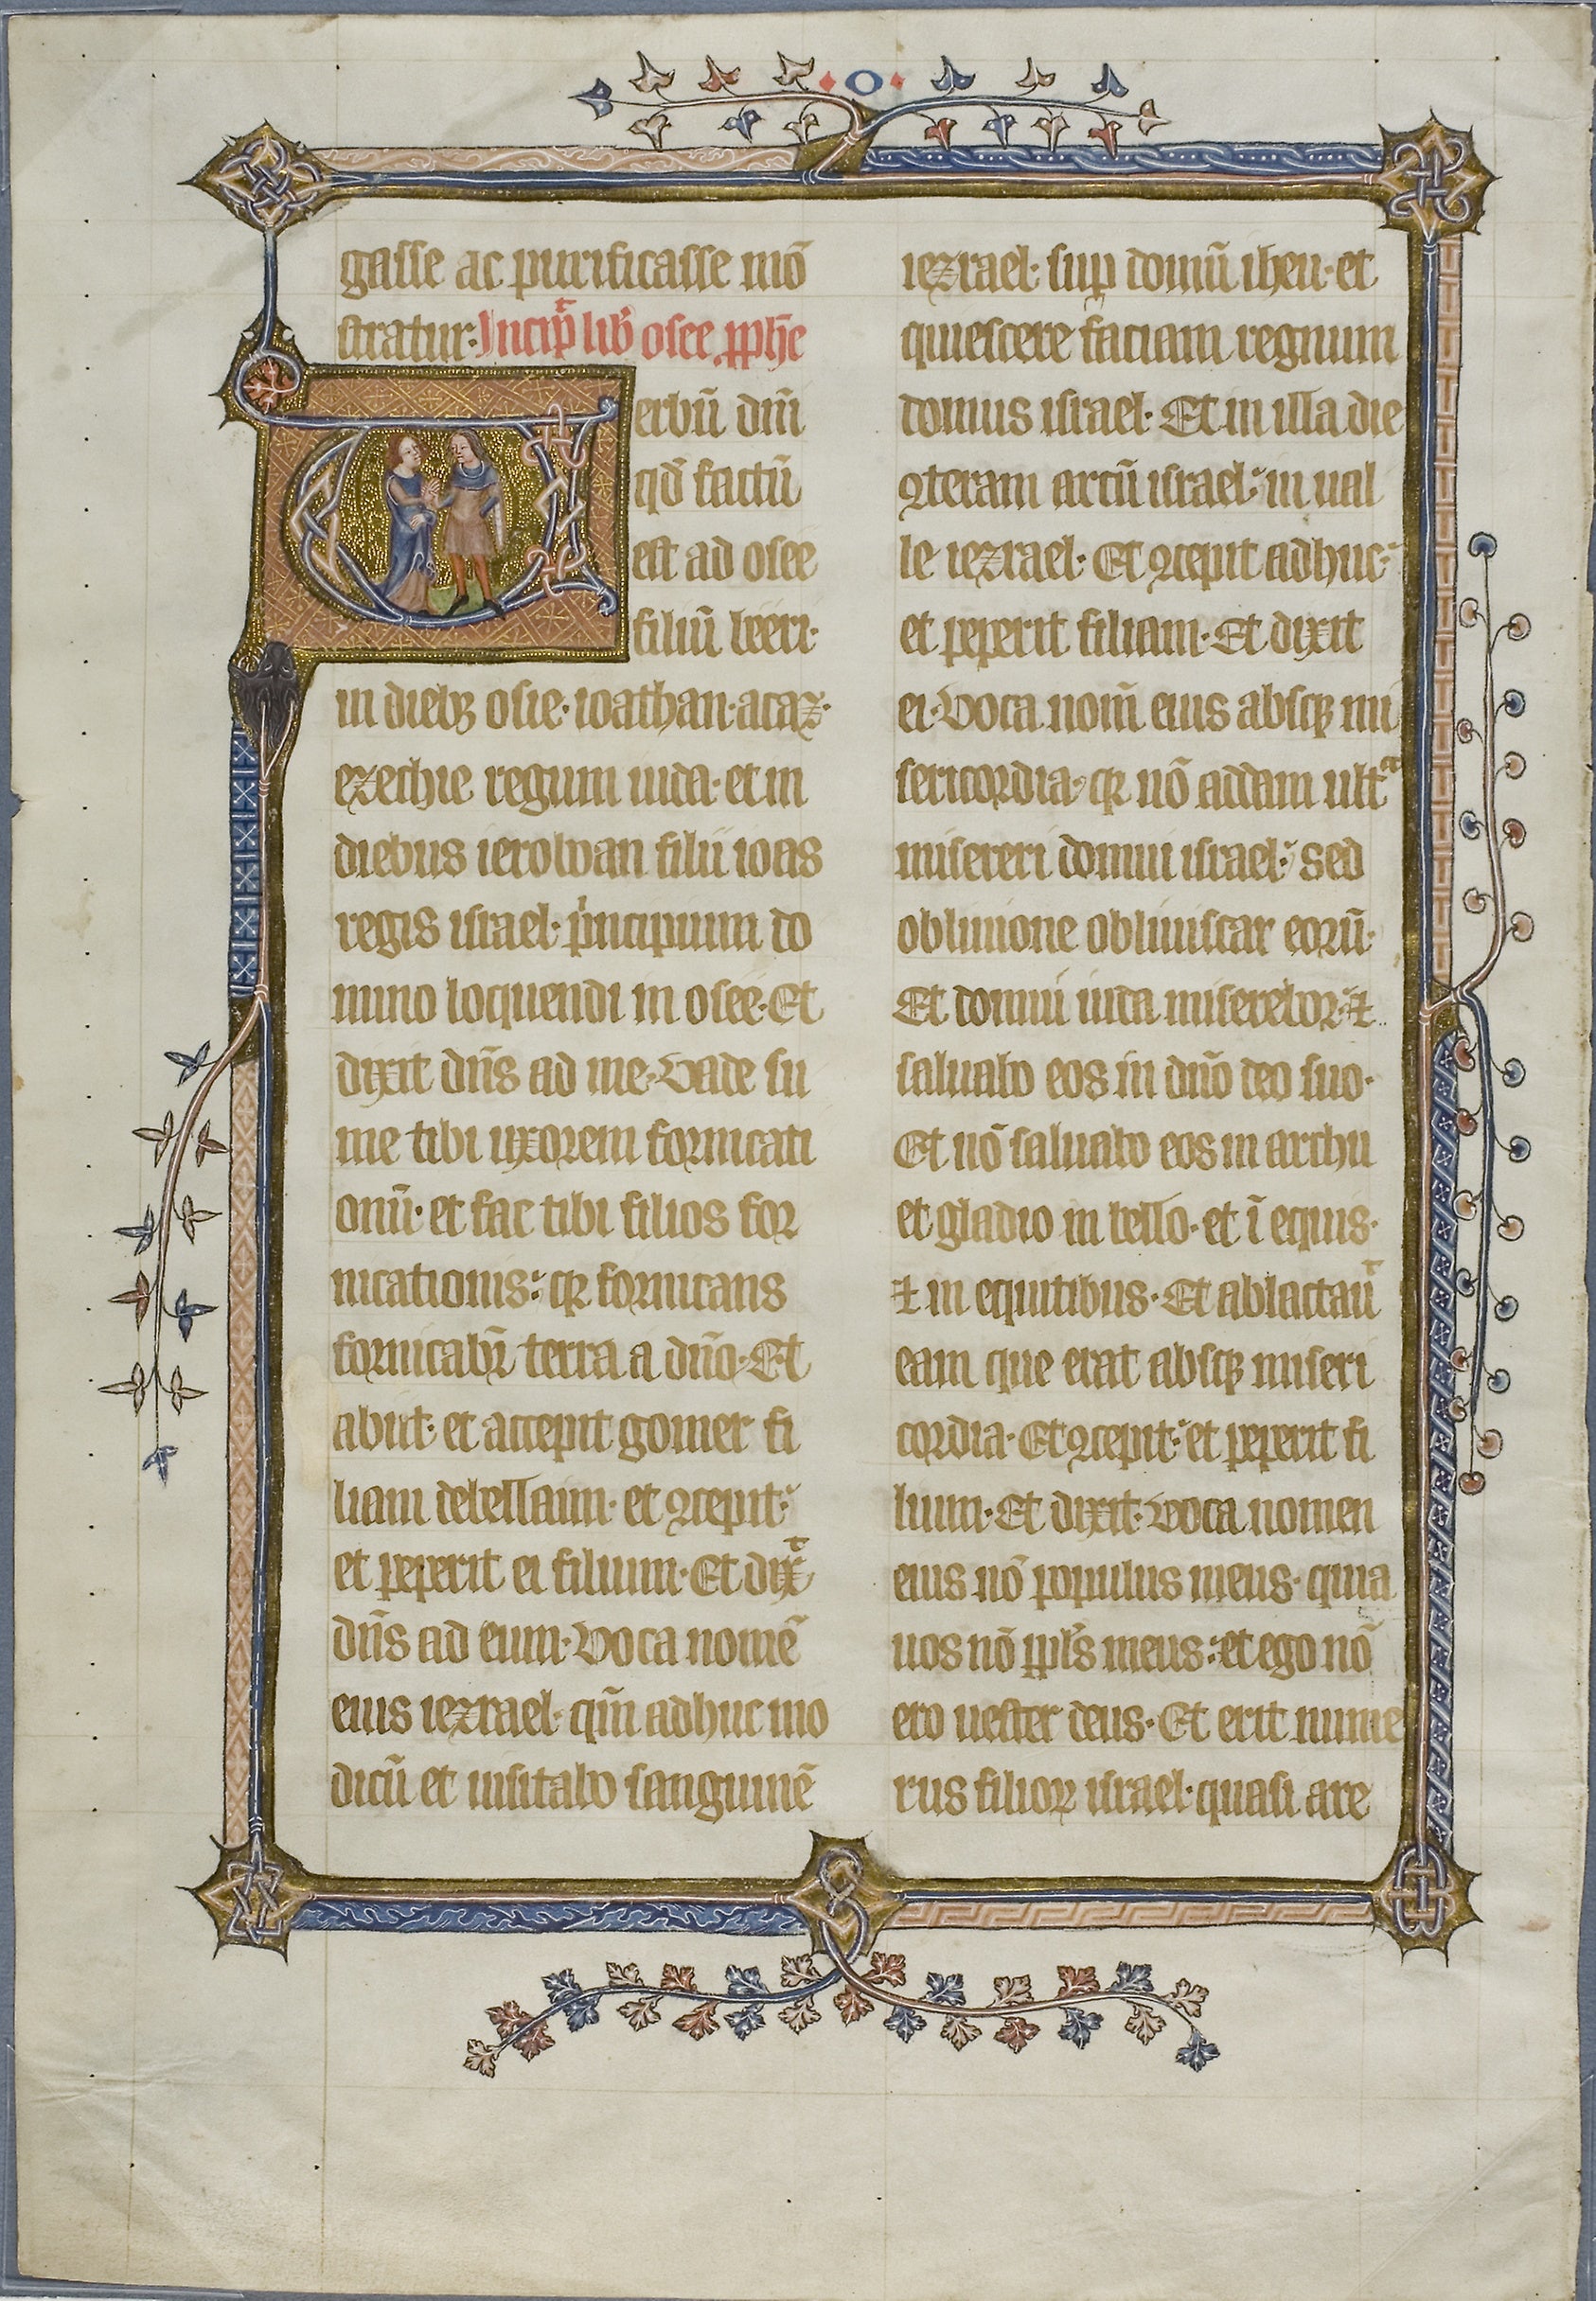 O
gasse ac purificasse mō
stratur. Incipᵗ lib̄ osee ꝓph̄e
erbū dn̄i
qd̄ factū
est ad osee
filiū beeri·
in diebꝫ osie· ioathan· acaz·
ezechie regum iuda· et in
diebus ieroboan filii ioas
regis israel· pⁱncipium do
mino loquendi in osee· Et
dixit dn̄s ad me· Vade su
me tibi uxorem fornicati
onū· et fac tibi filios for
nicationis: qꝛ fornicans
fornicabr̄ terra a dn̄o· Et
abiit· et accepit gomer fi
liam debellaim· et ꝯcepit·
et peperit ei filium· Et dixᵗ
dn̄s ad eum· Voca nomē
eius iezrael· qm̄ adhuc mo
dicū et uisitabo sanguinē
iezrael· suꝑ domū iheu· et
quiescere faciam regnum
domus israel· Et in illa die
ꝯteram arcū israel· in ual
le iezrael· Et ꝯcepit adhuc·
et peperit filiam· Et dixit
ei· Voca nom̄ eius absqꝫ mi
sericordia· qꝛ nō addam ultᵃ
misereri domui israel· sed
obliuione obliuiscar eorū·
Et domui iuda miserebor· ⁊
saluabo eos in dn̄o deo suo·
Et nō saluabo eos in archu
et gladio in bello· et ī equis·
⁊ in equitibus· Et ablactauᵗ
eam que erat absqꝫ miseri
cordia· Et ꝯcepit· et peperit fi
lium· Et dixit· Voca nomen
eius nō populus meus· quia
uos nō ppl̄s meus: et ego nō
ero uester deus· Et erit nume
rus filioꝝ israel· quasi are